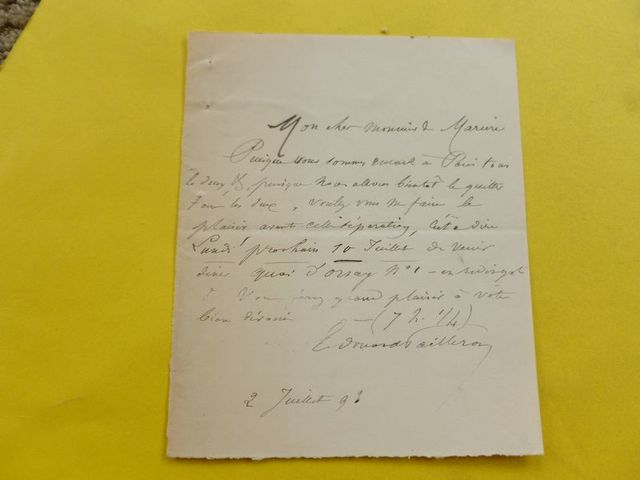 Mon cher Monsieur de
Puisque nous sommes encore à Paris tous
les deux, & puisque nous allons bientôt le quitter
tous les deux, voulez vous me faire le
plaisir avant cette séparation, c'est à dire
Lundi prochain 10 Juillet de venir
diner quai d'orsay No 1 - en redingote
? Vous ferez grand plaisir à votre
bien dévoué - (7 h. 1/4)
Edouard Pailleron
2 Juillet 93